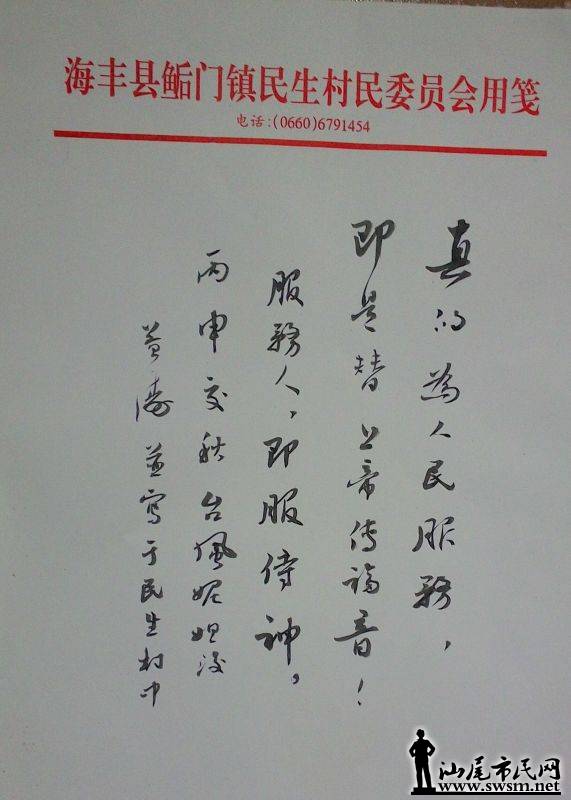 海丰县鲘门镇民生村民委员会用笺
电话:(0660)6791454
真的為人民服務，
即是替上帝传福音！
服務人，即服侍神。
丙申交秋台風妮妲後
黄濤並寫于民生村中
汕尾市民网
www.swsm.net